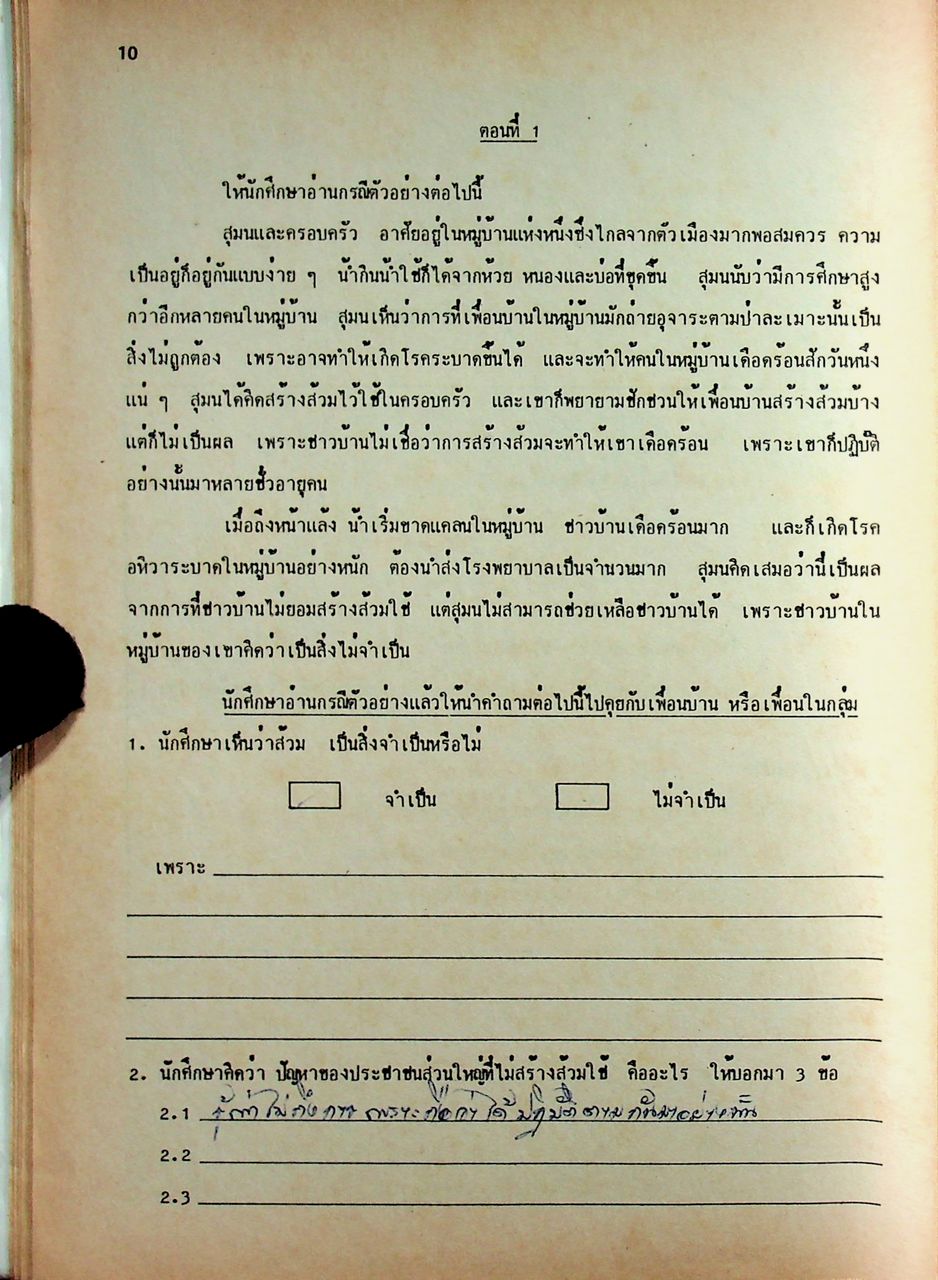 10
ตอนที่ 1
ให้นักศึกษาอ่านกรณีตัวอย่างต่อไปนี้
สุมนและครอบครัว อาศัยอยู่ในหมู่บ้านแห่งหนึ่งซึ่งไกลจากตัวเมืองมากพอสมควร ความ
เป็นอยู่ก็อยู่กันแบบง่าย ๆ น้ำกินน้ำใช้ก็ได้จากห้วย หนองและบ่อที่ขุดขึ้น สุมนนับว่ามีการศึกษาสูง
กว่าอีกหลายคนในหมู่บ้าน สุมนเห็นว่าการที่เพื่อนบ้านในหมู่บ้านมักถ่ายอุจาระตามป่าละเมาะนั้นเป็น
สิ่งไม่ถูกต้อง เพราะอาจทำให้เกิดโรคระบาดขึ้นได้ และจะทำให้คนในหมู่บ้านเดือดร้อนสักวันหนึ่ง
แน่ ๆ สุมนได้คิดสร้างส้วมไว้ใช้ในครอบครัว และเขาก็พยายามชักชวนให้เพื่อนบ้านสร้างส้วมบ้าง
แต่ก็ไม่เป็นผล เพราะชาวบ้านไม่เชื่อว่าการสร้างส้วมจะทำให้เขาเดือดร้อน เพราะเขาก็ปฏิบัติ
อย่างนั้นมาหลายชั่วอายุคน
เมื่อถึงหน้าแล้ง น้ำเริ่มขาดแคลนในหมู่บ้าน ชาวบ้านเดือดร้อนมาก และก็เกิดโรค
อหิวาระบาดในหมู่บ้านอย่างหนัก ต้องนำส่งโรงพยาบาลเป็นจำนวนมาก สุมนคิดเสมอว่านี่เป็นผล
จากการที่ชาวบ้านไม่ยอมสร้างส้วมใช้ แต่สุมนไม่สามารถช่วยเหลือชาวบ้านได้ เพราะชาวบ้านใน
หมู่บ้านของเขาคิดว่าเป็นสิ่งไม่จำเป็น
นักศึกษาอ่านกรณีตัวอย่างแล้วให้นำคำถามต่อไปนี้ไปคุยกับเพื่อนบ้าน หรือเพื่อนในกลุ่ม
1. นักศึกษาเห็นว่าส้วม เป็นสิ่งจำเป็นหรือไม่
จำเป็น ไม่จำเป็น
เพราะ
2. นักศึกษาคิดว่า ปัญหาของประชาชนส่วนใหญ่ที่ไม่สร้างส้วมใช้ คืออะไร ให้บอกมา 3 ข้อ
2.1 เพราะถือว่าได้ปฏิบัติตามกันมาอย่างนั้น
2.2
2.3